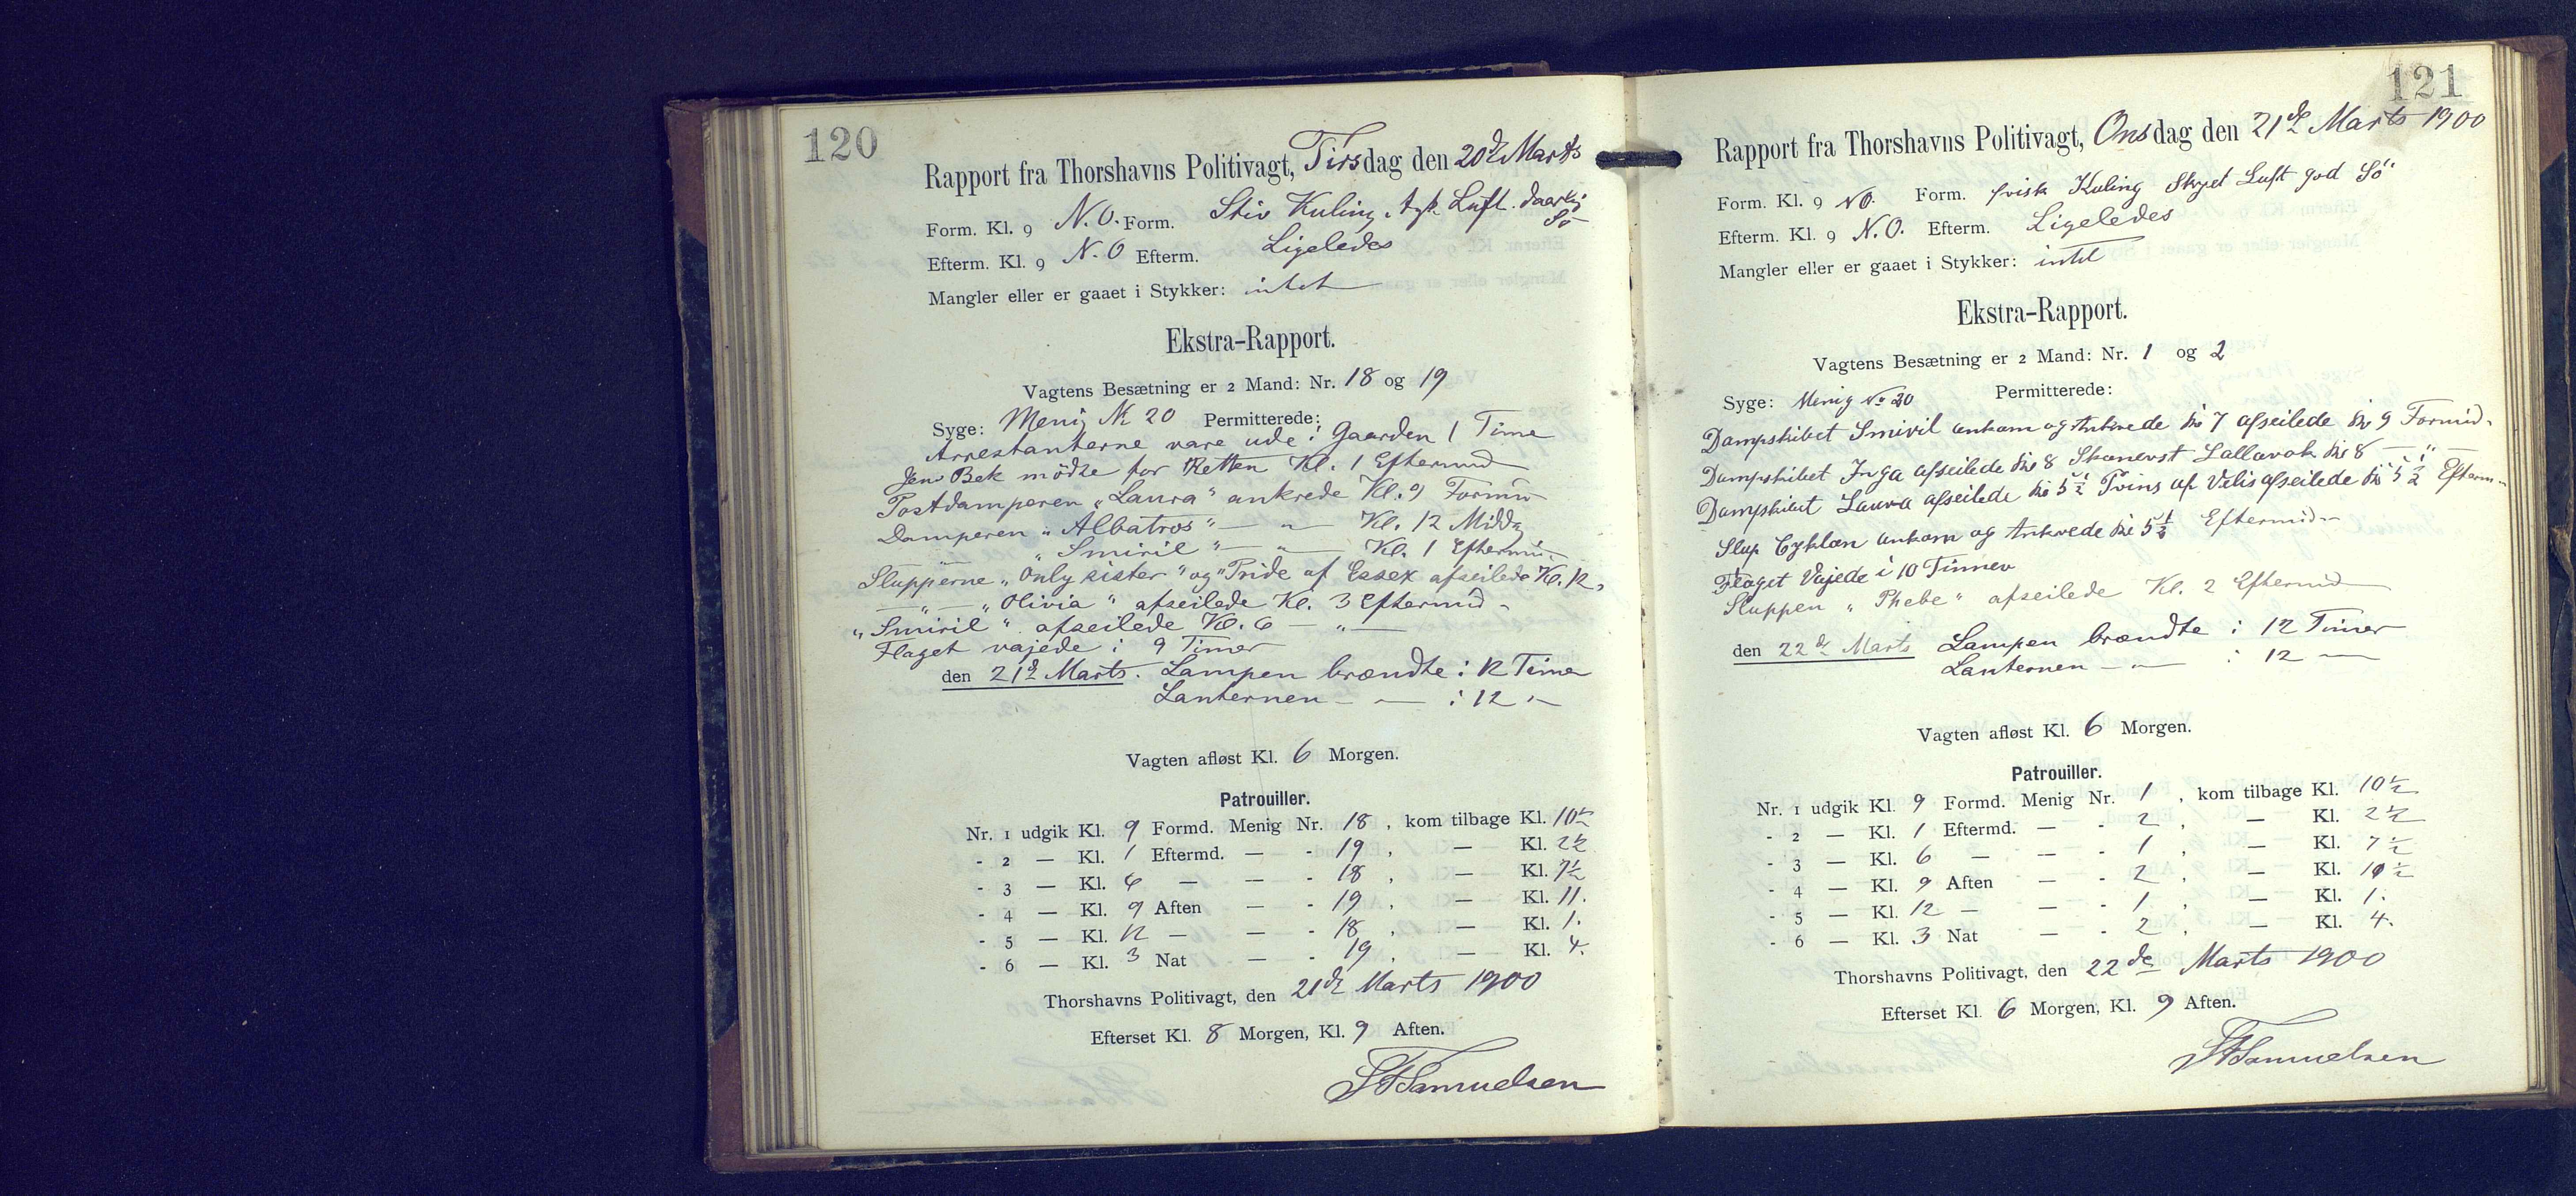 120
Rapport fra Thorshavns Politivagt, Tirsdag den 20de Marts
Form. Kl. 9 N.O. Form. Stiv Kuling, tyk Luft. daarlig Sö
Efterm. Kl. 9 N.O Efterm. Ligeledes
Mangler eller er gaaet i Stykker: intet
Ekstra-Rapport.
Vagtens Besætning er 2 Mand: Nr. 18 og 19
Syge: Menig № 20 Permitterede:
Arrestanterne vare ude i Gaarden 1 Time
Jens Bek mödte for Retten Kl. 1 Eftermid
Postdamperen „Laura" ankrede Kl. 9 Formid
Damperen „Albatros" — „ — Kl. 12 Midd
„ „Smiril" — „ — Kl. 1 Eftermid
Slupperne „Only sister" og „Pride of Essex afseilede Kl. 12,
— „ — „Olivia" afseilede Kl. 3 Eftermid-
„Smiril" afseilede Kl. 6 — „ —
Flaget vajede i 9 Timer
den 21de Marts. Lampen brændte i 12 Timer
Lanternen — „ — i 12 „—
Vagten afløst Kl. 6 Morgen.
Patrouiller.
Nr. 1 udgik Kl. 9 Formd. Menig Nr. 18, kom tilbage Kl. 10½
- 2 — Kl. 1 Eftermd. — - 19, — Kl. 2½
- 3 — Kl. 6 — — - 18, — Kl. 7½
- 4 — Kl. 9 Aften — - 19, — Kl. 11.
- 5 — Kl. 12 — — - 18, — Kl. 1.
- 6 — Kl. 3 Nat — - 19, — Kl. 4.
Thorshavns Politivagt, den 21de Marts 1900
Efterset Kl. 8 Morgen, Kl. 9 Aften.
Samuelsen
121
Rapport fra Thorshavns Politivagt, Onsdag den 21de Marts 1900
Form. Kl. 9 NO. Form. frisk Kuling Skyet Luft god Sö
Efterm. Kl. 9 N.O. Efterm. Ligeledes
Mangler eller er gaaet i Stykker: intet
Ekstra-Rapport.
Vagtens Besætning er 2 Mand: Nr. 1 og 2
Syge: Menig № 20 Permitterede:
Dampskibet Smiril ankom og Ankrede Kl 7 afseilede Kl 9 Formid-
Dampskibet Inga afseilede Kl 8 Skonerst Lallavok Kl 8 — „ —
Dampskibet Laura afseilede Kl 5½ Prins af Velis afseilede Kl 5½ Efterm-
Slup Cyklon ankom og Ankrede Kl 5½ Eftermid-
Flaget Vajede i 10 Timer
Sluppen „Phebe" afseilede Kl. 2 Eftermid
den 22de Marts Lampen brændte i 12 Timer
Lanternen — „ — i 12 —
Vagten afløst Kl. 6 Morgen.
Patrouiller.
Nr. 1 udgik Kl. 9 Formd. Menig Nr. 1, kom tilbage Kl. 10½
- 2 — Kl. 1 Eftermd. — - 2, — Kl. 2½
- 3 — Kl. 6 — — - 1, — Kl. 7½
- 4 — Kl. 9 Aften — - 2, — Kl. 10½
- 5 — Kl. 12 — — - 1, — Kl. 1.
- 6 — Kl. 3 Nat — - 2, — Kl. 4.
Thorshavns Politivagt, den 22de Marts 1900
Efterset Kl. 6 Morgen, Kl. 9 Aften.
Samuelsen